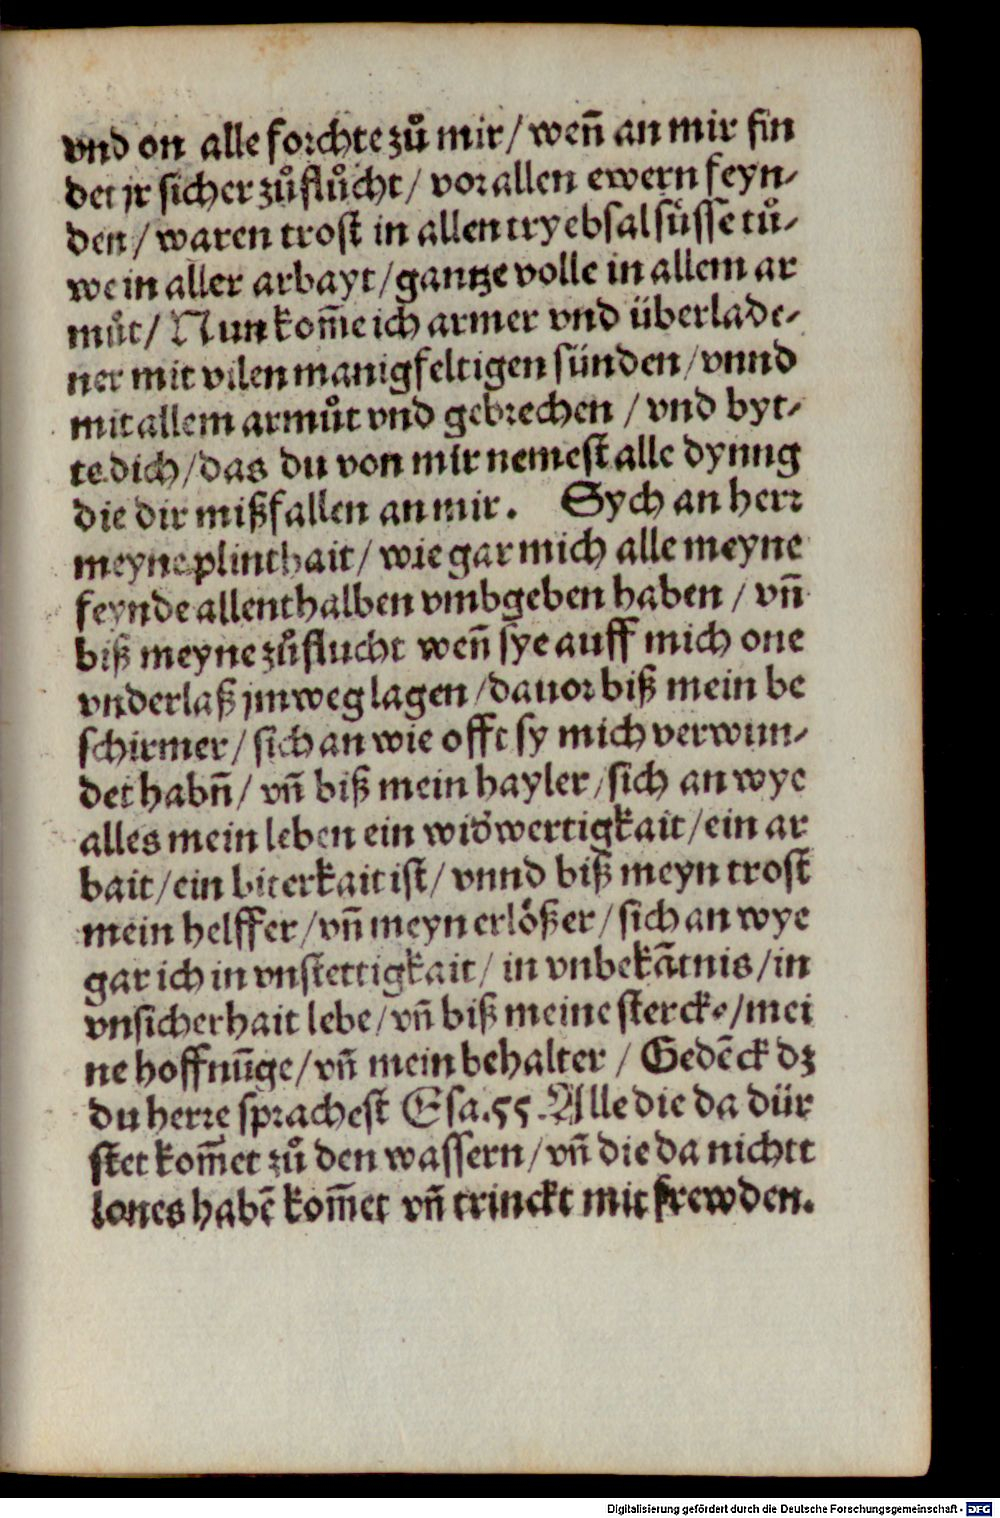 vnd on alle forchte zuͦ mir / weñ an mir fin
det jr sicher zuͦfluͦcht / vor allen ewern feyn⸗
den / waren trost in allen tryebsal suͤsse tuͦ⸗
we in aller arbayt / gantze volle in allem ar
muͦt / Nun kom̄e ich armer vnd überlade⸗
ner mit vilen manigfeltigen sünden / vnnd
mit allem armuͦt vnd gebrechen / vnd byt⸗
te dich / das du von mir nemest alle dynng
die dir mißfallen an mir . Sych an herr
meyne plinthait / wie gar mich alle meyne
feynde allenthalben vmbgeben haben / vñ
biß meyne zuͦflucht weñ sye auff mich one
vnderlaß jm weg lagen / dauor biß mein be
schirmer / sich an wie offt sy mich verwun⸗
det habñ / vñ biß mein hayler / sich an wye
alles mein leben ein wid̄wertigkait / ein ar
bait / ein biterkait ist / vnnd biß meyn trost
mein helffer / vñ meyn erlößer / sich an wye
gar ich in vnstettigkait / in vnbekātnis / in
vnsicherhait lebe / vñ biß meine stercke / mei
ne hoffnūge / vñ mein behalter / Gedēck dz
du herre sprachest Esa.55. Alle die da dür
stet kom̄et zuͦ den wassern / vñ die da nichtt
lones habē kom̄et vñ trinckt mit frewden.
Digitalisierung gefördert durch die Deutsche Forschungsgemeinschaft - DFG